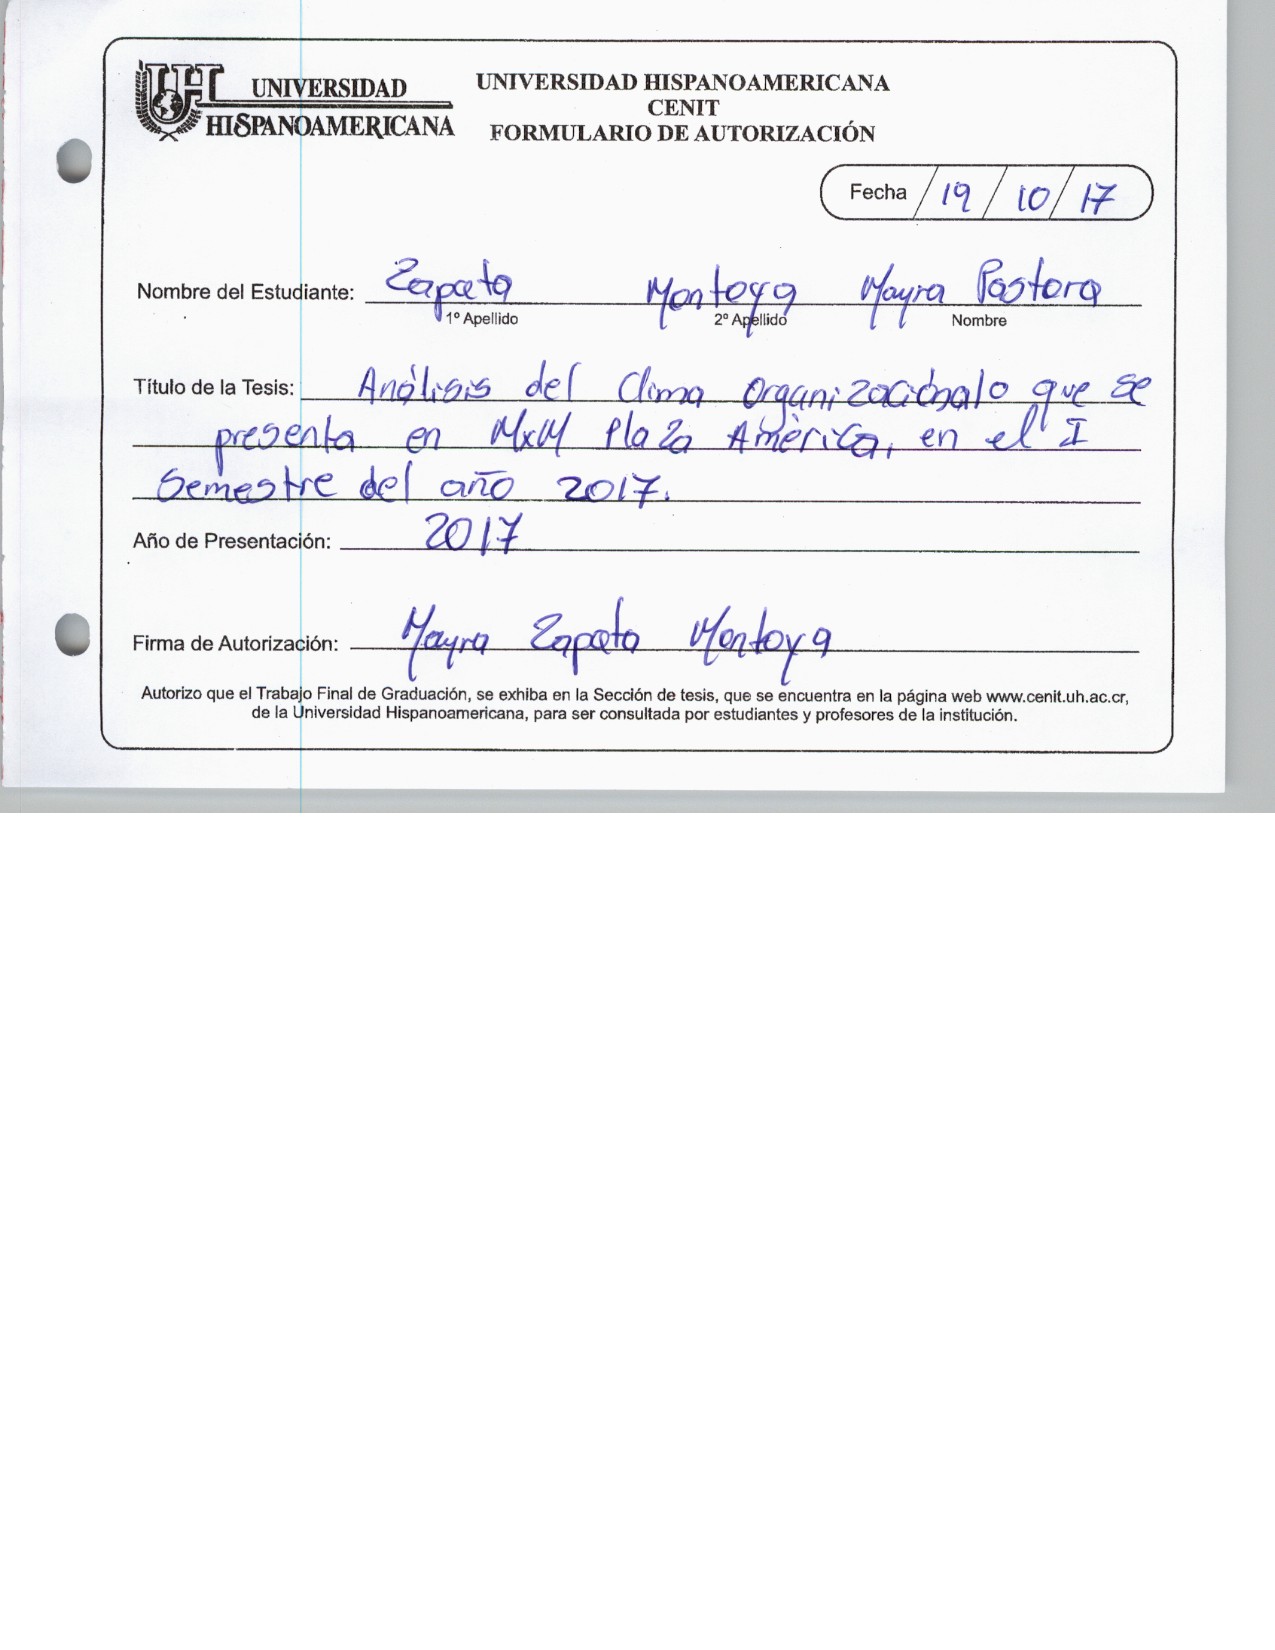 UNIVERSIDAD
HISPANOAMERICANA
UNIVERSIDAD HISPANOAMERICANA
CENIT
FORMULARIO DE AUTORIZACIÓN
Fecha / 19 / 10 / 17
Nombre del Estudiante: Zapata Montoya Mayra Pastora
1º Apellido 2º Apellido Nombre
Título de la Tesis: Análisis del Clima Organizaciónalo que se
presenta en MxM Plaza América, en el I
Semestre del año 2017.
Año de Presentación: 2017
Firma de Autorización: Mayra Zapata Montoya
Autorizo que el Trabajo Final de Graduación, se exhiba en la Sección de tesis, que se encuentra en la página web www.cenit.uh.ac.cr,
de la Universidad Hispanoamericana, para ser consultada por estudiantes y profesores de la institución.